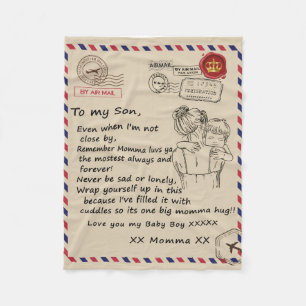 AIRMAIL
BY AIR MAIL
PAR AVION
BY AIR MAIL
To my Son,
Even when I'm not
close by,
Remember Momma luvs ya
the mostest always and
forever!
Never be sad or lonely,
Wrap yourself up in this
because I've filled it with
cuddles so its one big momma hug!!
Love you my Baby Boy XXXXX
XX Momma XX